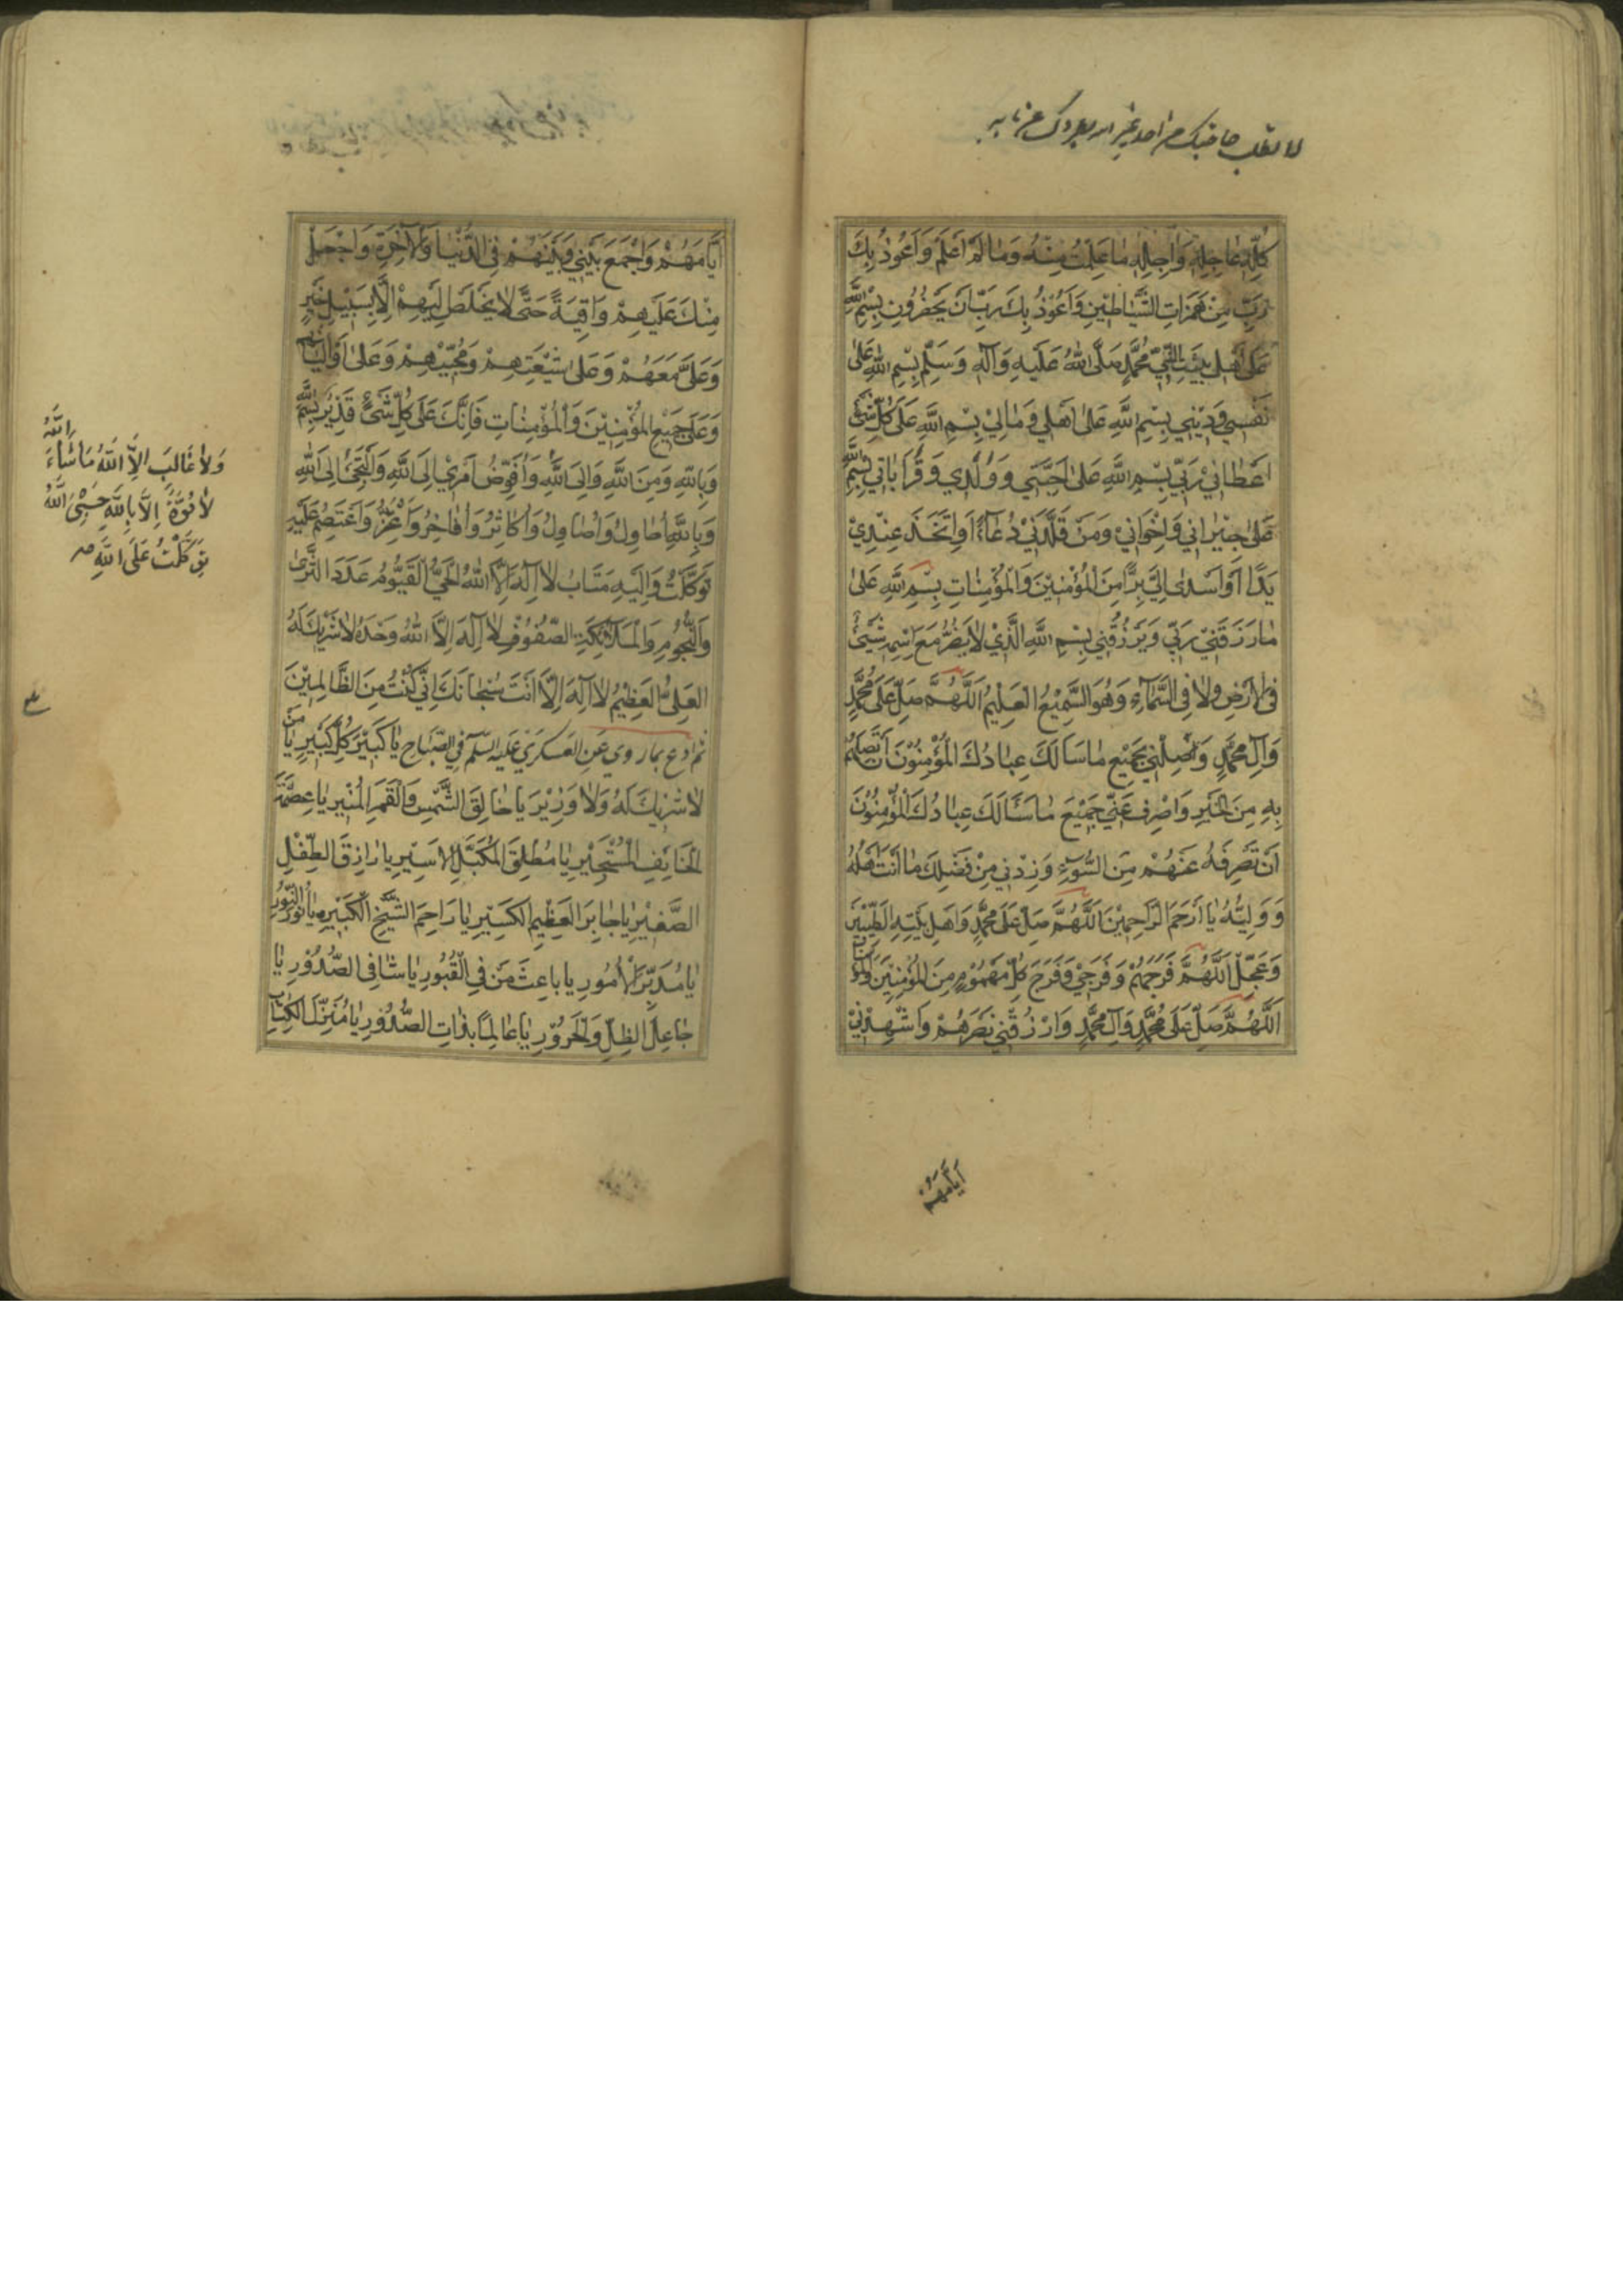 كُلِّهِ عَاجِلِهِ وَاٰجِلِهِ مٰا عَلِمْتُ مِنْهُ وَمٰا لَمْ اَعْلَمْ وَاَعُوذُ بِكَ
رَبِّ مِنْ هَمَزَاتِ الشَّيٰاطِيْنِ وَاَعُوْذُ بِكَ رَبِّ اَنْ يَحْضُرُونِ بِسْمِ اللّٰهِ
عَلىٰ اَهْلِ بَيْتِ النَّبِيِّ مُحَمَّدٍ صَلَّى اللّٰهُ عَلَيْهِ وَاٰلِهِ وَسَلَّمَ بِسْمِ اللّٰهِ عَلىٰ
نَفْسِي وَدِيْنِي بِسْمِ اللّٰهِ عَلىٰ اَهْلِي وَمٰالِيْ بِسْمِ اللّٰهِ عَلىٰ كُلِّ شَيْءٍ
اَعْطٰانِيْ رَبِّيْ بِسْمِ اللّٰهِ عَلىٰ اَحِبَّتِي وَوُلْدِي وَقَرٰابٰاتِي بِسْمِ اللّٰهِ
عَلىٰ جِيْرٰانِي وَاِخْوٰانِيْ وَمَنْ قَلَّدَنِيْ دُعٰاءً اَوِ اتَّخَذَ عِنْدِيْ
يَدًا اَوْ اَسْدىٰ اِلَيَّ بِرًّا مِنَ الْمُؤْمِنِيْنَ وَالْمُؤْمِنٰاتِ بِسْمِ اللّٰهِ عَلىٰ
مٰا رَزَقَنِيْ رَبِّي وَيَرْزُقُنِي بِسْمِ اللّٰهِ الَّذِيْ لاٰ يَضُرُّ مَعَ اسْمِهِ شَيْءٌ
فِي الْاَرْضِ وَلاٰ فِي السَّمٰاءِ وَهُوَ السَّمِيْعُ الْعَلِيْمُ اَللّٰهُمَّ صَلِّ عَلىٰ مُحَمَّدٍ
وَاٰلِ مُحَمَّدٍ وَصِلْنِيْ بِجَمِيْعِ مٰا سَاَلَكَ عِبٰادُكَ الْمُؤْمِنُوْنَ اَنْ تَصِلَهُمْ
بِهِ مِنَ الْخَيْرِ وَاصْرِفْ عَنِّيْ جَمِيْعَ مٰا سَئَالَكَ عِبٰادُكَ الْمُؤْمِنُوْنَ
اَنْ تَصْرِفَهُ عَنْهُمْ مِنَ السُّوْءِ وَزِدْنِي مِنْ فَضْلِكَ مٰا اَنْتَ اَهْلُهُ
وَوَلِيُّهُ يٰا اَرْحَمَ الرّٰاحِمِيْنَ اَللّٰهُمَّ صَلِّ عَلىٰ مُحَمَّدٍ وَاَهْلِ بَيْتِهِ الطَّيِّبِيْنَ
وَعَجِّلِ اللّٰهُمَّ فَرَجَهُمْ وَفَرَجِيْ وَفَرِّجْ كُلَّ مَهْمُوْمٍ مِنَ الْمُؤْمِنِيْنَ وَالْمُؤْمِنٰاتِ
اَللّٰهُمَّ صَلِّ عَلىٰ مُحَمَّدٍ وَاٰلِ مُحَمَّدٍ وَارْزُقْنِي نَصْرَهُمْ وَاَشْهِدْنِيْ
اَيّٰامَهُمْ
اَيّٰامَهُمْ وَاجْمَعْ بَيْنِيْ وَبَيْنَهُمْ فِي الدُّنْيٰا وَالْاٰخِرَةِ وَاجْعَلْ
مِنْكَ عَلَيْهِمْ وٰاقِيَةً حَتّٰى لاٰ يَخْلُصَ اِلَيْهِمْ اِلاّٰ بِسَبِيْلِ خَيْرٍ
وَعَلَيَّ مَعَهُمْ وَعَلىٰ شِيْعَتِهِمْ وَمُحِبِّيْهِمْ وَعَلىٰ اَوْلِيٰائِهِمْ
وَعَلىٰ جَمِيْعِ الْمُؤْمِنِيْنَ وَالْمُؤْمِنٰاتِ فَاِنَّكَ عَلىٰ كُلِّ شَيْءٍ قَدِيْرٌ بِسْمِ اللّٰهِ
وَبِاللّٰهِ وَمِنَ اللّٰهِ وَاِلَى اللّٰهِ وَاُفَوِّضُ اَمْرِيْ اِلَى اللّٰهِ وَاَلْتَجِئُ اِلَى اللّٰهِ
وَبِاللّٰهِ اُحٰاوِلُ وَاُصٰاوِلُ وَاُكٰاثِرُ وَاُفٰاخِرُ وَاَعْتَزُّ وَاَعْتَصِمُ عَلَيْهِ
تَوَكَّلْتُ وَاِلَيْهِ مَتٰابِ لاٰ اِلٰهَ اِلاَّ اللّٰهُ الْحَيُّ الْقَيُّوْمُ عَدَدَ الثَّرىٰ
وَالنُّجُوْمِ وَالْمَلاٰئِكَةِ الصُّفُوْفِ لاٰ اِلٰهَ اِلاَّ اللّٰهُ وَحْدَهُ لاٰ شَرِيْكَ لَهُ
الْعَلِيُّ الْعَظِيْمُ لاٰ اِلٰهَ اِلاّٰ اَنْتَ سُبْحٰانَكَ اِنِّي كُنْتُ مِنَ الظّٰالِمِيْنَ
ثُمَّ ادْعُ بِمٰا رُوِيَ عَنِ الْعَسْكَرِيِّ عَلَيْهِ السَّلٰمُ فِي الصَّبٰاحِ يٰا كَبِيْرَ كُلِّ كَبِيْرٍ يٰا مَنْ
لاٰ شَرِيْكَ لَهُ وَلاٰ وَزِيْرَ يٰا خٰالِقَ الشَّمْسِ وَالْقَمَرِ الْمُنِيْرِ يٰا عِصْمَةَ
الْخٰائِفِ الْمُسْتَجِيْرِ يٰا مُطْلِقَ الْمُكَبَّلِ الْاَسِيْرِ يٰا رٰازِقَ الطِّفْلِ
الصَّغِيْرِ يٰا جٰابِرَ الْعَظِيْمِ الْكَسِيْرِ يٰا رٰاحِمَ الشَّيْخِ الْكَبِيْرِ يٰا نُوْرَ النُّوْرِ
يٰا مُدَبِّرَ الْاُمُوْرِ يٰا بٰاعِثَ مَنْ فِي الْقُبُوْرِ يٰا شٰافِيَ الصُّدُوْرِ يٰا
جٰاعِلَ الظِّلِّ وَالْحَرُوْرِ يٰا عٰالِمًا بِذٰاتِ الصُّدُوْرِ يٰا مُنْزِلَ الْكِتٰابِ
وَلاٰ غٰالِبَ اِلاَّ اللّٰهُ مٰا شٰاءَ اللّٰهُ
لاٰ قُوَّةَ اِلاّٰ بِاللّٰهِ حَسْبِيَ اللّٰهُ
تَوَكَّلْتُ عَلَى اللّٰهِ